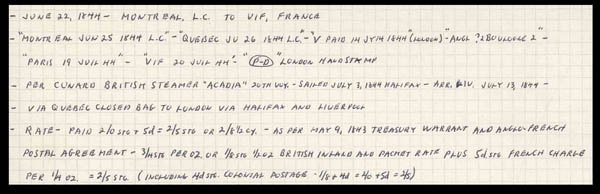 - JUNE 22, 1844 - MONTREAL, L.C. TO VIF, FRANCE
- "MONTREAL JUN 25 1844 L.C." - "QUEBEC JU 26 1844 L.C." - "V PAID 14 JY 14 1844" (LONDON) - "ANGL. 2 BOULOGNE 2" -
"PARIS 19 JUIL 44" - "VIF 20 JUIL 44" - "P-D" LONDON HANDSTAMP
- PER CUNARD BRITISH STEAMER "ACADIA" 20TH VOY. - SAILED JULY 3, 1844 HALIFAX - ARR. LIV. JULY 13, 1844 -
- VIA QUEBEC CLOSED BAG TO LONDON VIA HALIFAX AND LIVERPOOL
- RATE - PAID 2/0 STG + 5d = 2/5 STG OR 2/8½ CY. - AS PER MAY 9, 1843 TREASURY WARRANT AND ANGLO-FRENCH
POSTAL AGREEMENT - 3/4 STG PER OZ. OR 1/8 STG ½ OZ BRITISH INLAND AND PACKET RATE PLUS 5d STG FRENCH CHARGE
PER ¼ OZ. = 2/5 STG. (INCLUDING 4d STG. COLONIAL POSTAGE - 1/8 + 4d = 2/0 + 5d = 2/5)